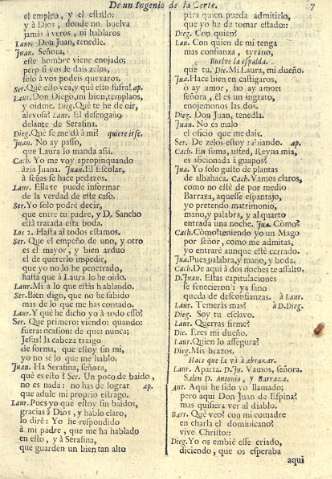 De un Ingenio de la Corte. 7
el empeño, y el estilo:
y à Dios, donde tus huella
jamàs à veros, ni hablaros
Laur. Don Juan, tenedle.
Juan. Señora,
este hombre viene enojado;
pero si vos le dais zelos,
solo à vos puede mataros.
Ser. Què esto vea, y que esto sufra! ap.
Laur. Don Diego, ni bien templaos,
y oidme. Dieg. Què te he de oir,
alevosa? Laur. El desengaño
delante de Serafina.
Dieg. Què se me dà à mi? quiere irse.
Juan. No ay passo,
que Laura lo manda assi.
Cach. Yo me voy apropinquando
àzia Juana. Juan. El Escolar,
à señas se hace pedazos.
Laur. Ella te puede informar
de la verdad de este caso.
Ser. Yo solo podrè decir,
que entre tu padre, y D. Sancho
està tratada esta boda.
Los 2. Hasta aì todos estamos.
Ser. Que el empeño de uno, y otro
es el mayor, y bien arduo
el de quererlo impedir,
que yo no lo he penetrado,
hasta que à Laura lo he oìdo.
Laur. Mira lo que estàs hablando.
Ser. Bien digo, que no he sabido
mas de lo que me has contado.
Laur. Y què he dicho yo à todo esso?
Ser. Que primero viendo: quando:
fuera: ocasion de que: nunca:
Jesus! la cabeza traigo
de forma, que estoy sin mi,
yo no sè lo que me hablo.
Juan. Ha Serafina, señora,
què es esto? Ser. Un poco de baido,
no es nada: no has de lograr ap.
que adule mi proprio estrago.
Laur. Pues yo que estoy sin baidos,
gracias à Dios, y hablo claro,
lo dirè: Yo he respondido
à mi padre, que me ha hablado
en esto, y à Serafina,
que guarden un bien tan alto
para quien pueda admitirlo,
que yo he de tomar estado:
Dieg. Con quien?
Lau. Con quien de mi tenga
mas confianza, tyrano,
Vuelve la espalda.
què tu. Die. Mi Laura, mi dueño.
Jua. Hace bien en castigaros,
o ay amor, no ay amor:
señora, èl es un ingrato,
enojemonos las dos.
Dieg. Don Juan, tenedla.
Juan. No es malo
el oficio que me dais.
Ser. De zelos estoy rabiando. ap.
Cach. En suma, usted, Reyna mia,
es aficionada à guapos?
Jua. Yo solo gusto de plantas
de albahaca. Cach. Vamos claros,
como no estè de por medio
Barraza, aquesse espantajo,
yo pretendo matrimonio,
mano, y palabra, y al quarto
entrada una noche. Jua. Còmo?
Cach. Còmo? teniendo yo un Mago
por señor, como me admitas,
yo entrarè aunque estè cerrado.
Jua. Pues palabra, y mano, y boda.
Cach. De aqui à dos noches te assalto.
D. Juan. Estas capitulaciones
se fenecieron: ya sino
queda de desconfianzas. à Laur.
Laur. Temeràs mas? à D. Dieg.
Dieg. Soy tu esclavo.
Laur. Querràs firme?
Die. Eres mi dueño.
Laur. Quien lo assegura?
Dieg. Mis brazos.
Hace que la và à abrazar.
Laur. Aparta. D. Ju. Vamos, señora.
Salen D. Antonio, y Barraza.
Ant. Aqui he sido yo llamado;
pero aqui Don Juan de Espina!
mas quisiera ver al diablo.
Barr. Què veo! con mi comadre
en charla el dominicano!
vive Christo::
Dieg. Yo os embiè esse criado,
diciendo, que os esperaba
aqui